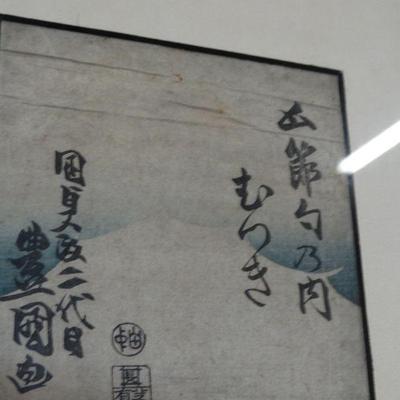 五節句乃内
むつき
国貞改二代目
豊国画